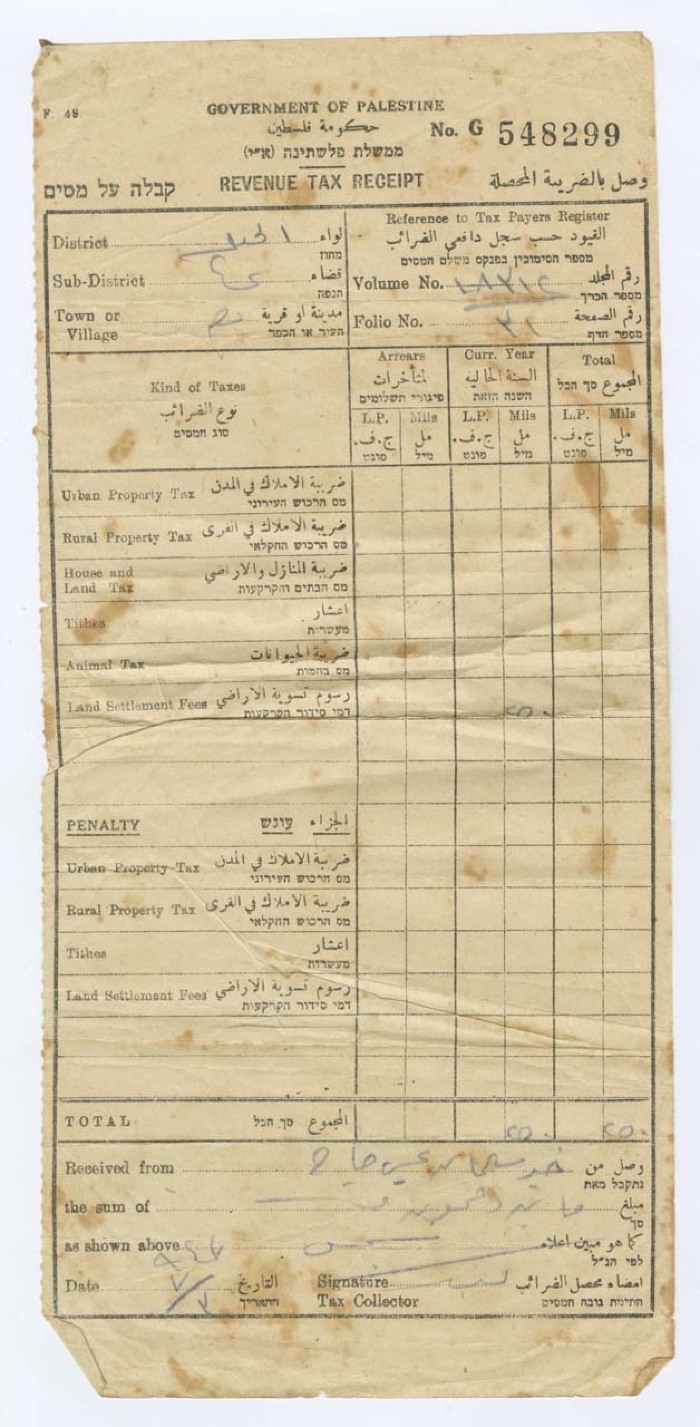 F. 49
GOVERNMENT OF PALESTINE
حكومة فلسطين
No. G 548299
ממשלת פלשתינה (א״י)
קבלה על מסים REVENUE TAX RECEIPT وصل بالضريبة المحصلة
District لواء
מחוז
Sub-District قضاء
הנפה
Town or Village مدينة أو قرية
העיר או הכפר
Reference to Tax Payers Register
القيود حسب سجل دافعي الضرائب
מספר הסימוכין בפנקס משלם המסים
Volume No. رقم المجلد
מספר הכרך
Folio No. ٣١ رقم الصفحة
מספר הדף
Kind of Taxes
نوع الضرائب
סוג המסים
Arrears
متأخرات
פיגורי תשלומים
Curr. Year
السنة الحالية
השנה הזאת
Total
المجموع סך הכל
L.P. Mils L.P. Mils L.P. Mils
ج.ف. مل ج.ف. مل ج.ف. مل
פונט מיל פונט מיל פונט מיל
Urban Property Tax ضريبة الاملاك في المدن
מס הרכוש העירוני
Rural Property Tax ضريبة الاملاك في القرى
מס הרכוש החקלאי
House and Land Tax ضريبة المنازل والاراضي
מס הבתים והקרקעות
Tithes اعشار
מעשרות
Animal Tax ضريبة الحيوانات
מס בהמות
Land Settlement Fees رسوم تسوية الاراضي
דמי סידור הקרקעות
٢٥٠
PENALTY עונש الجزاء
Urban Property Tax ضريبة الاملاك في المدن
מס הרכוש העירוני
Rural Property Tax ضريبة الاملاك في القرى
מס הרכוש החקלאי
Tithes اعشار
מעשרות
Land Settlement Fees رسوم تسوية الاراضي
דמי סידור הקרקעות
TOTAL סך הכל المجموع ٢٥٠ ٢٥٠
Received from وصل من
נתקבל מאת
the sum of مبلغ
סך
as shown above كما هو مبين اعلاه
לפי הנ״ל
Date التاريخ
התאריך
Signature امضاء محصل الضرائب
Tax Collector חתימת גובה המסים